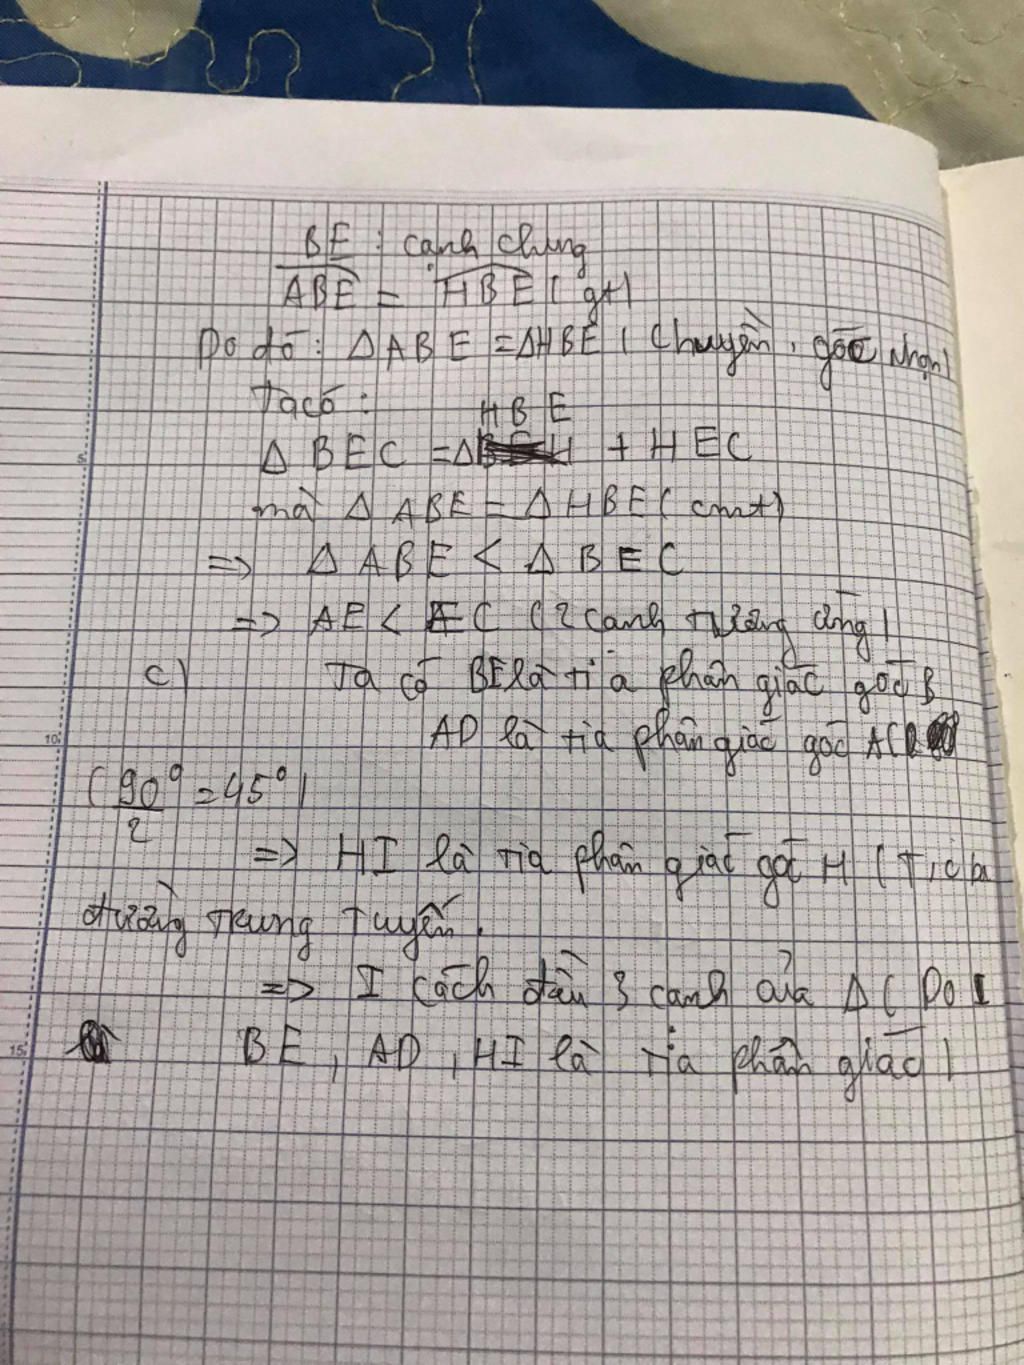 BE : cạnh chung
ABE = HBE ( gt)
Do đó : Δ ABE = ΔHBE ( Chuyền, góc nhọn)
Ta có :
HBE
Δ BEC = Δ + HEC
mà Δ ABE = Δ HBE ( cmt)
=> Δ ABE < Δ BEC
=> AE < EC ( 2 cạnh tương ứng)
c) Ta có BE là tia phân giác góc B
AD là tia phân giác góc A(
( 90° = 45° )
2
=> HI là tia phân giác góc H ( T,c ba
đường trung tuyến.
=> I cách đều 3 cạnh của Δ ( Do
BE, AD, HI là tia phân giác)
5
10
15